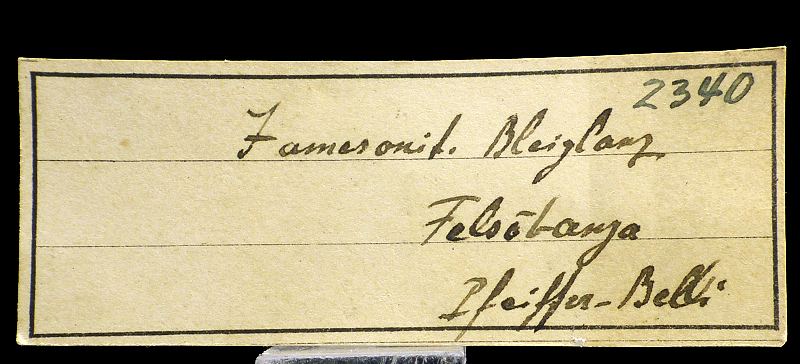 2340
Jamesonit. Bleiglanz
Felsöbanya
Pfeiffer-Belli